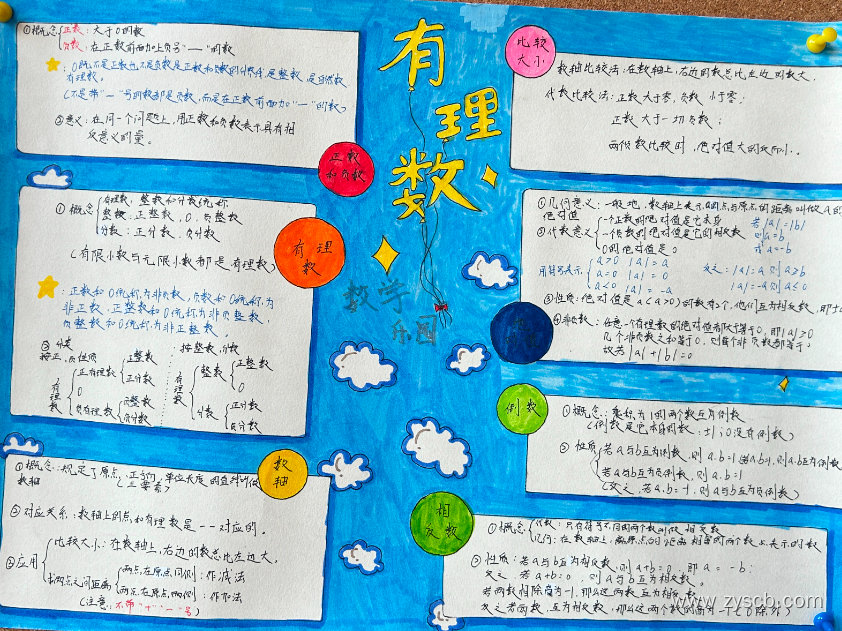 有理数
数学
乐园
正数
和负数
①概念 正数：大于0的数
负数：在正数前面加上负号"—"的数
0既不是正数也不是负数是正数和负数的分界线,是整数,是自然数,
有理数。
(不是带"—"号的数都是负数,而是在正数前面加"—"的数)
②意义：在同一个问题上,用正数和负数表示具有相
反意义的量。
有理
数
①概念 有理数：整数和分数统称
整数：正整数,0,负整数
分数：正分数,负分数
(有限小数与无限小数都是有理数)
正数和0统称为非负数,负数和0统称为
非正数,正整数和0统称为非负整数,
负整数和0统称为非正整数。
②分类
按正、负性质
有理数
正有理数
正整数
正分数
0
负有理数
负整数
负分数
按整数,分数
有理数
整数
正整数
0
分数
正分数
负分数
数
轴
①概念：规定了原点,正方向,单位长度的直线叫做
数轴
(三要素)
②对应关系：数轴上的点和有理数是一一对应的。
③应用
比较大小：在数轴上,右边的数总比左边大,
求两点之间距离
两点在原点同侧：作减法
两点在原点两侧：作加法
(注意：不带"+""—"号)
比较
大小
数轴比较法：在数轴上,右边的数总比左边的数大,
代数比较法：正数大于零,负数小于零,
正数大于一切负数；
两个负数比较时,绝对值大的反而小。
①几何意义：一般地,数轴上表示a的点与原点的距离叫做a的
绝对值
②代数意义
一个正数的绝对值是它本身
一个负数的绝对值是它的相反数
0的绝对值是0
若|a|=|b|
则a=b
或a=-b
用符号表示
a>0 |a|=a
a=0 |a|=0
a<0 |a|=-a
|a|=-a则a≤0
③性质：绝对值是a(a>0)的数有2个,他们互为相反数,即±
④非负数：任意一个有理数的绝对值都大于等于0,即|a|≥0
几个非负数之和等于0,则每个非负数都等于
故若|a|+|b|=0
倒数
①概念：乘积为1的两个数互为倒数
(倒数是它本身的数：±1；0没有倒数)
②性质
若a与b互为倒数,则a·b=1;若a·b=1,则a,b互为倒数
若a与b互为负倒数,则a·b=-1
(反之,若a·b=-1,则a与b互为负倒数)
相
反数
①概念
代数：只有符号不同的两个数叫做相反数
几何：在数轴上,离原点的距离相等的两个数上表示的数
②性质：若a与b互为相反数,则a+b=0,即a=-b；
反之 若a+b=0,则a与b互为相反数。
若两数相除商为-1,那么这两数互为相反数
反之若两数,互为相反数,那么这两个数的商为-1(0除外)
www.zyscb.com